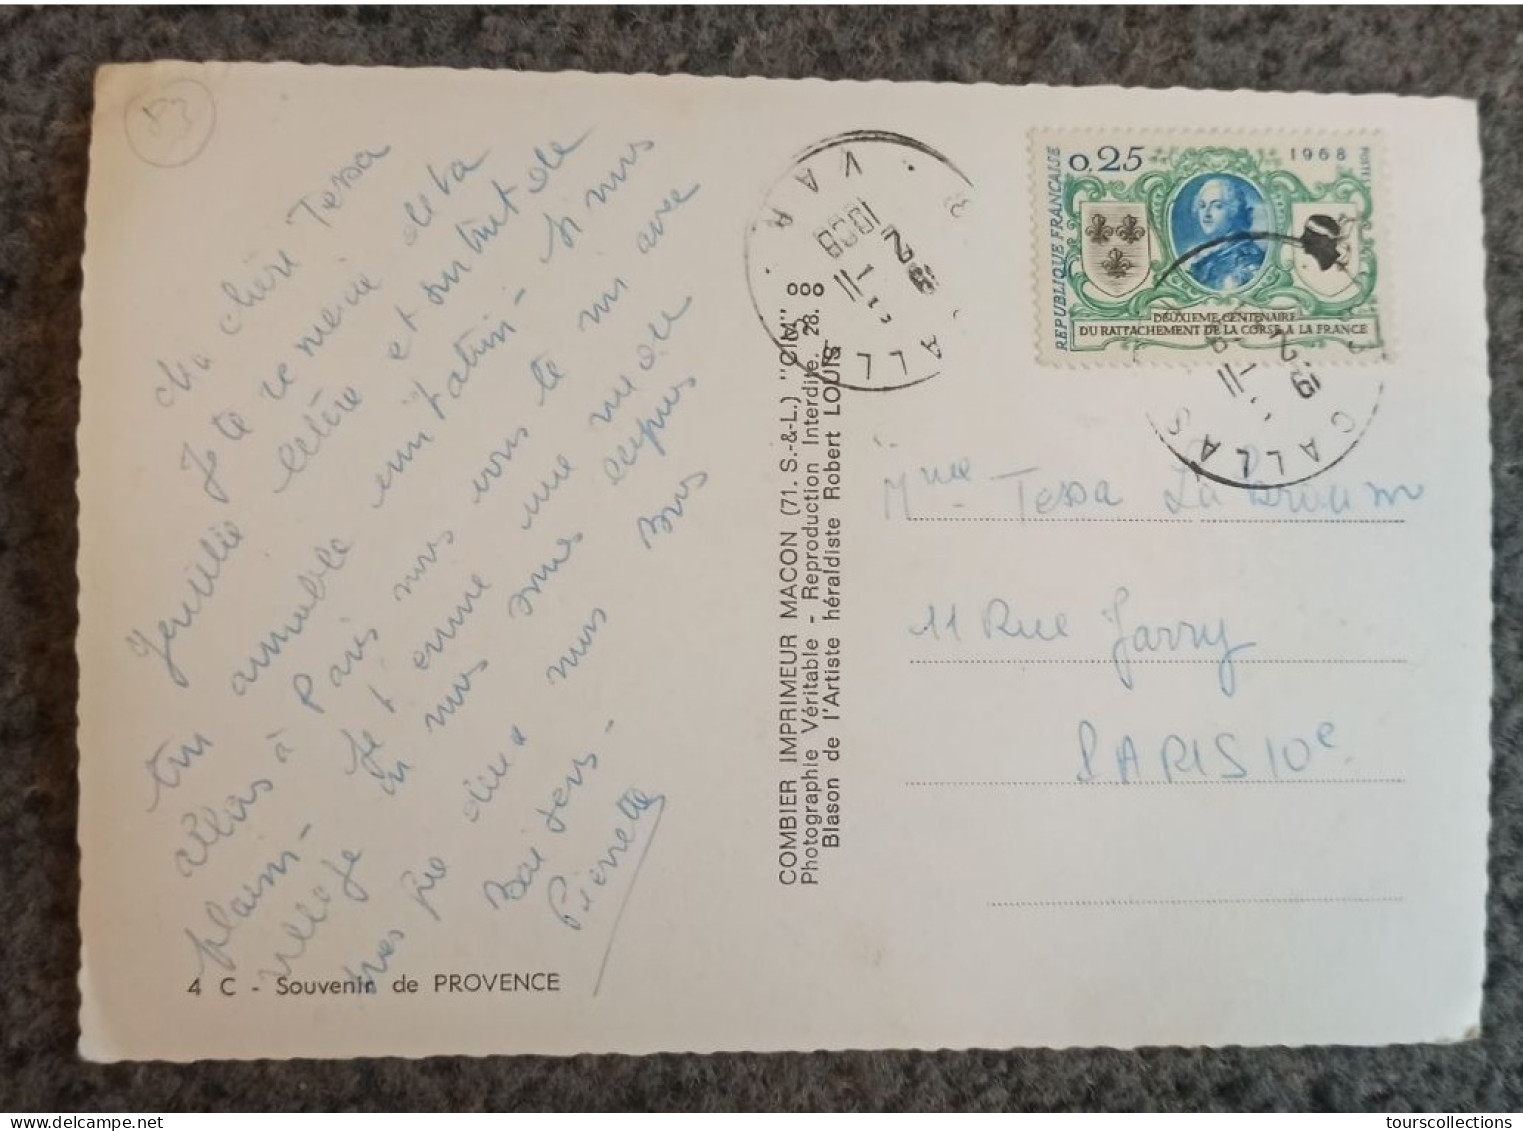 83
Ma chère Tessa
Je te remercie de ta
gentille lettre et surtout de
ton aimable invitation - si nous
allons à Paris nous irons te voir avec
plaisir - Je t'envie une
village si nous sommes
très nous
Baisers -
Pierrette
4 C - Souvenir de PROVENCE
COMBIER IMPRIMEUR MACON (71. S.-&-L.) "CIM"
Photographie Véritable - Reproduction Interdite. 28. 8
Blason de l'Artiste héraldiste Robert LOUIS
CALLAS VAR
REPUBLIQUE FRANÇAISE
0,25
1968
POSTES
DEUXIEME CENTENAIRE
DU RATTACHEMENT DE LA CORSE A LA FRANCE
CALLAS
Mme Tessa
11 Rue Jarry
PARIS 10e
tourscollections